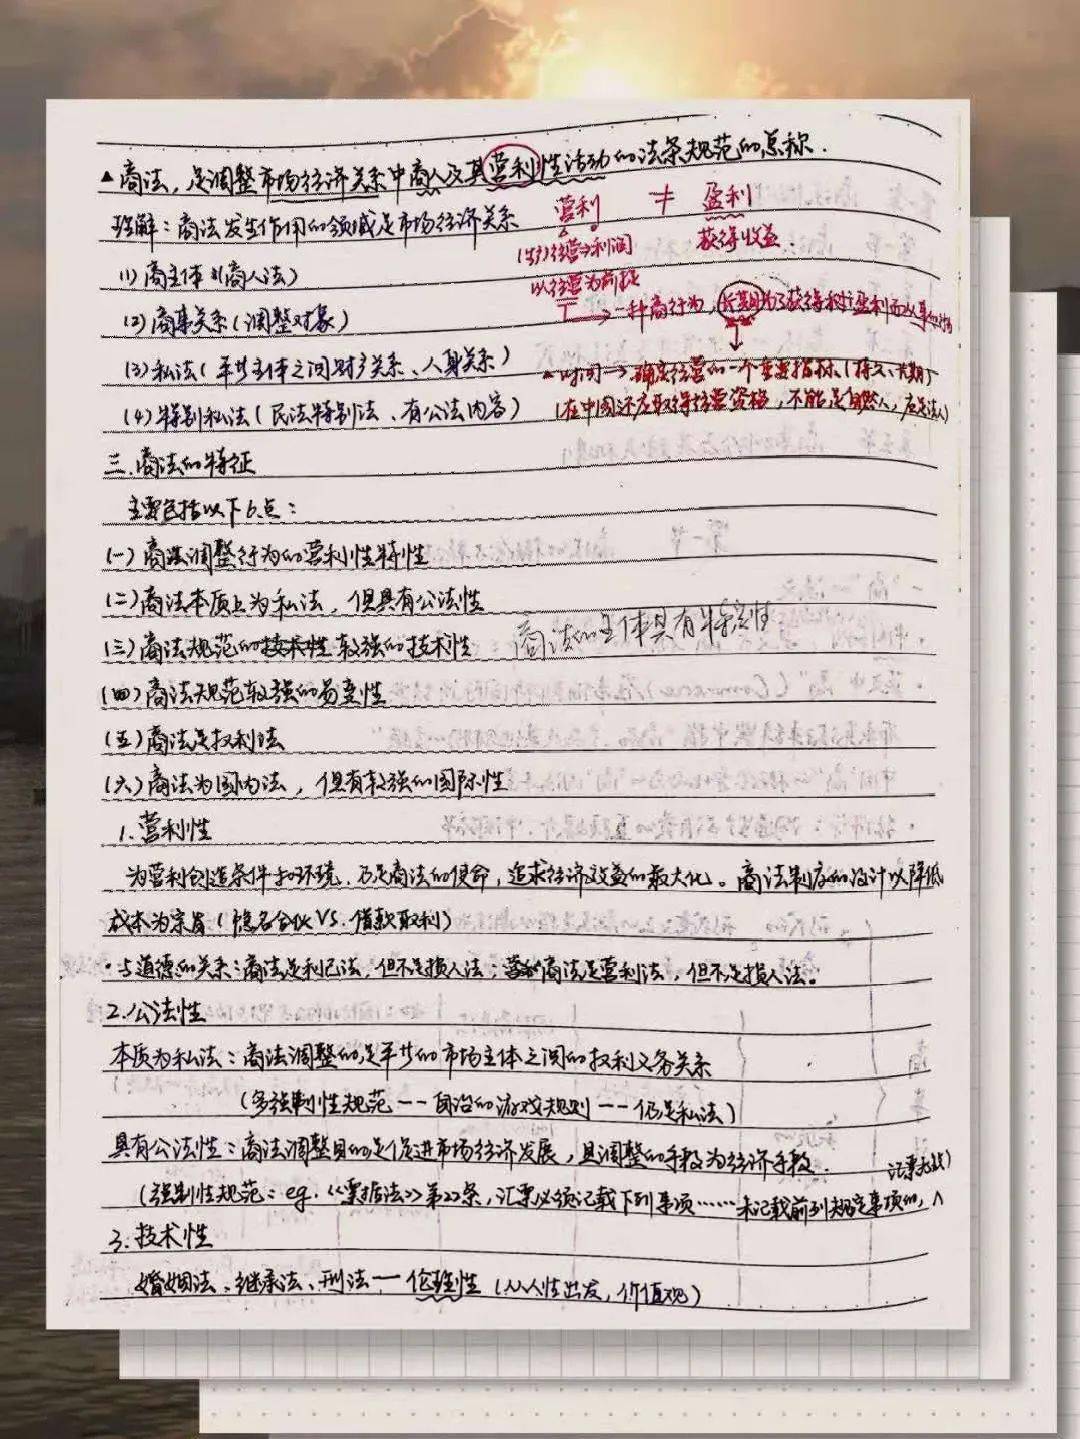 ▲商法，是调整市场经济关系中商人及其营利性活动的法条规范的总称.
理解：商法发生作用的领域是市场经济关系
营利 ≠ 盈利
经营⇒利润 获得收益.
(1) 商主体 (商人法)
以经营为前提
→一种商行为, 长期为了获得利益盈利而从事的
(2) 商事关系 (调整对象)
(3) 私法 (平等主体之间财产关系、人身关系)
时间→确定经营的一个重要指标 (持久、长期)
(4) 特别私法 (民法特别法、有公法内容)
(在中国还应取得经营资格, 不能是自然人, 应是法人)
三.商法的特征
主要包括以下6点：
(一) 商法调整行为的营利性特性
(二) 商法本质上为私法，但具有公法性
商法的主体具有特定性
(三) 商法规范的技术性较强的技术性
(四) 商法规范较强的易变性
(五) 商法是权利法
(六) 商法为国内法，但有较强的国际性
1. 营利性
为营利创造条件和环境, 乃是商法的使命, 追求经济效益的最大化。商法制度的设计以降低
成本为宗旨 (隐名合伙VS. 借款取利)
·与道德的关系：商法是利己法, 但不是损人法；商法是营利法，但不是损人法。
2. 公法性
本质为私法：商法调整的是平等的市场主体之间的权利义务关系
(多强制性规范 -- 自治的游戏规则 -- 仍是私法)
具有公法性：商法调整目的是促进市场经济发展，且调整的手段为经济手段.
汇票无效)
(强制性规范：eg.《票据法》第22条, 汇票必须记载下列事项……未记载前列规定事项的, ∧
3. 技术性
婚姻法、继承法、刑法 — 伦理性 (从人性出发, 价值观)